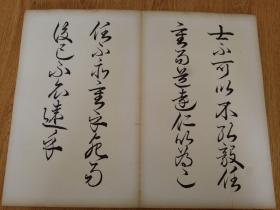 士不可以不弘毅任
重而道遠仁以為己
任不亦重乎死而
後已不亦遠乎